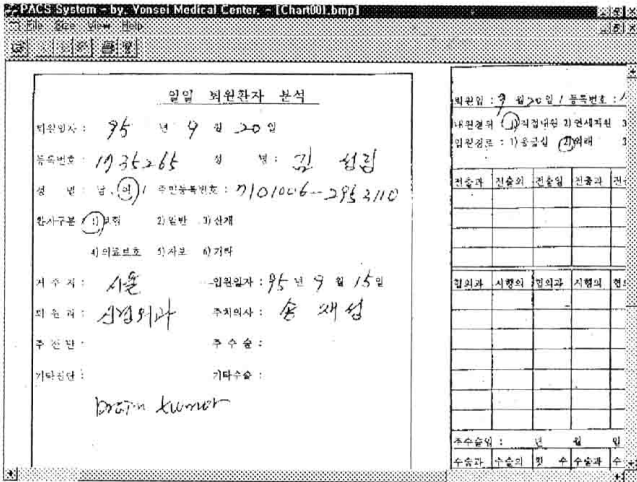 PACS System - by. Yonsei Medical Center. - [Chart001.bmp]
File Size View Help
일일 퇴원환자 분석
퇴원일자 : 95 년 9 월 20 일
등록번호 : 성 명 : 김
성 별 : 남, 여 / 주민등록번호 :
환자구분 : 1) 보험 2) 일반 3) 산재
4) 의료보호 5) 자보 6) 기타
거 주 지 : 서울 입원일자 : 95 년 9 월 15 일
퇴 원 과 : 신경외과 주치의사 : 송 재 성
주 진 단 : 주 수 술 :
기타진단 : 기타수술 :
Brain tumor
퇴원일 : 9 월 20 일 / 등록번호 :
내원경위 : 1) 직접내원 2) 연세지원 3
입원경로 : 1) 응급실 2) 외래 3
전출과 전출의 전출일 전출과 전
협의과 시행의 협의과 시행의 협
주수술일 : 년 월 일
수술과 수술의 횟 수 수술과 수